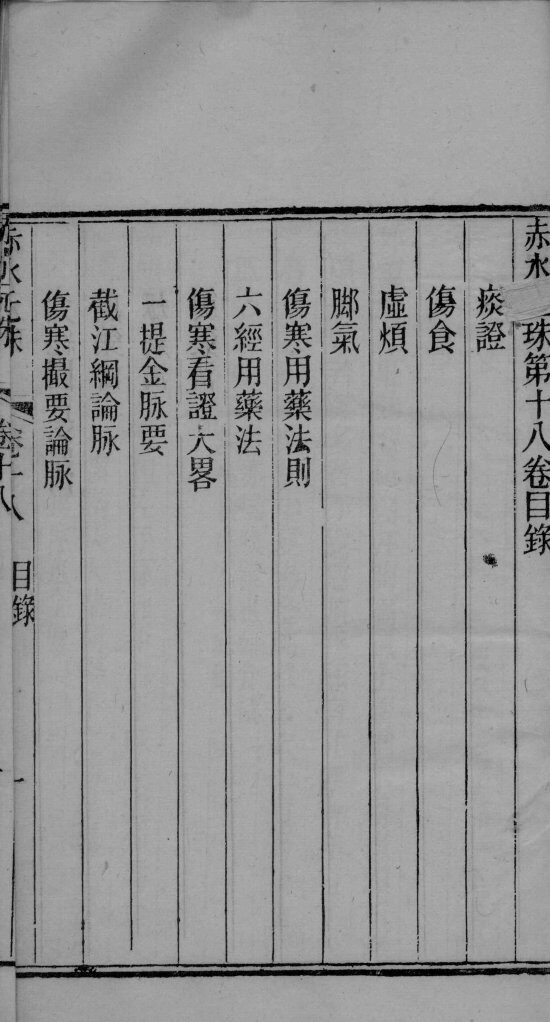 赤水珠第十八卷目錄
痰證
傷食
虛煩
脚氣
傷寒用藥法則
六經用藥法
傷寒看證大畧
一提金脉要
截江綱論脉
傷寒撮要論脉
目錄
卷十八